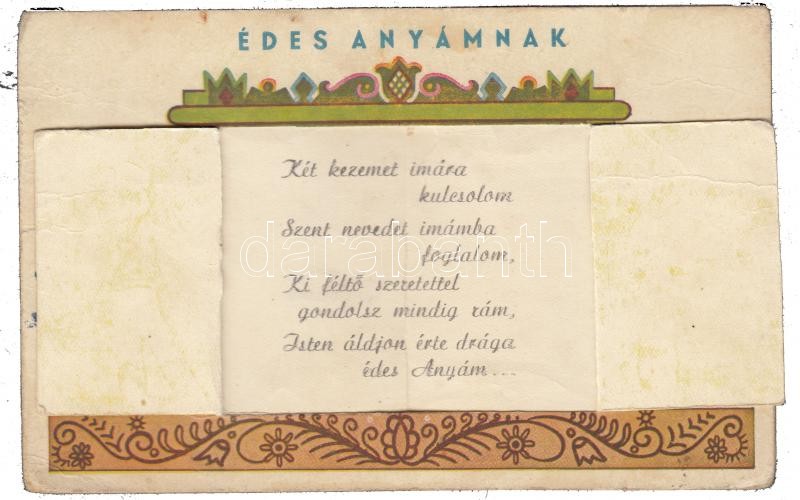 ÉDES ANYÁMNAK
Két kezemet imára
kulcsolom
Szent nevedet imámba
foglalom,
Ki féltő szeretettel
gondolsz mindig rám,
Isten áldjon érte drága
édes Anyám...
darabanth